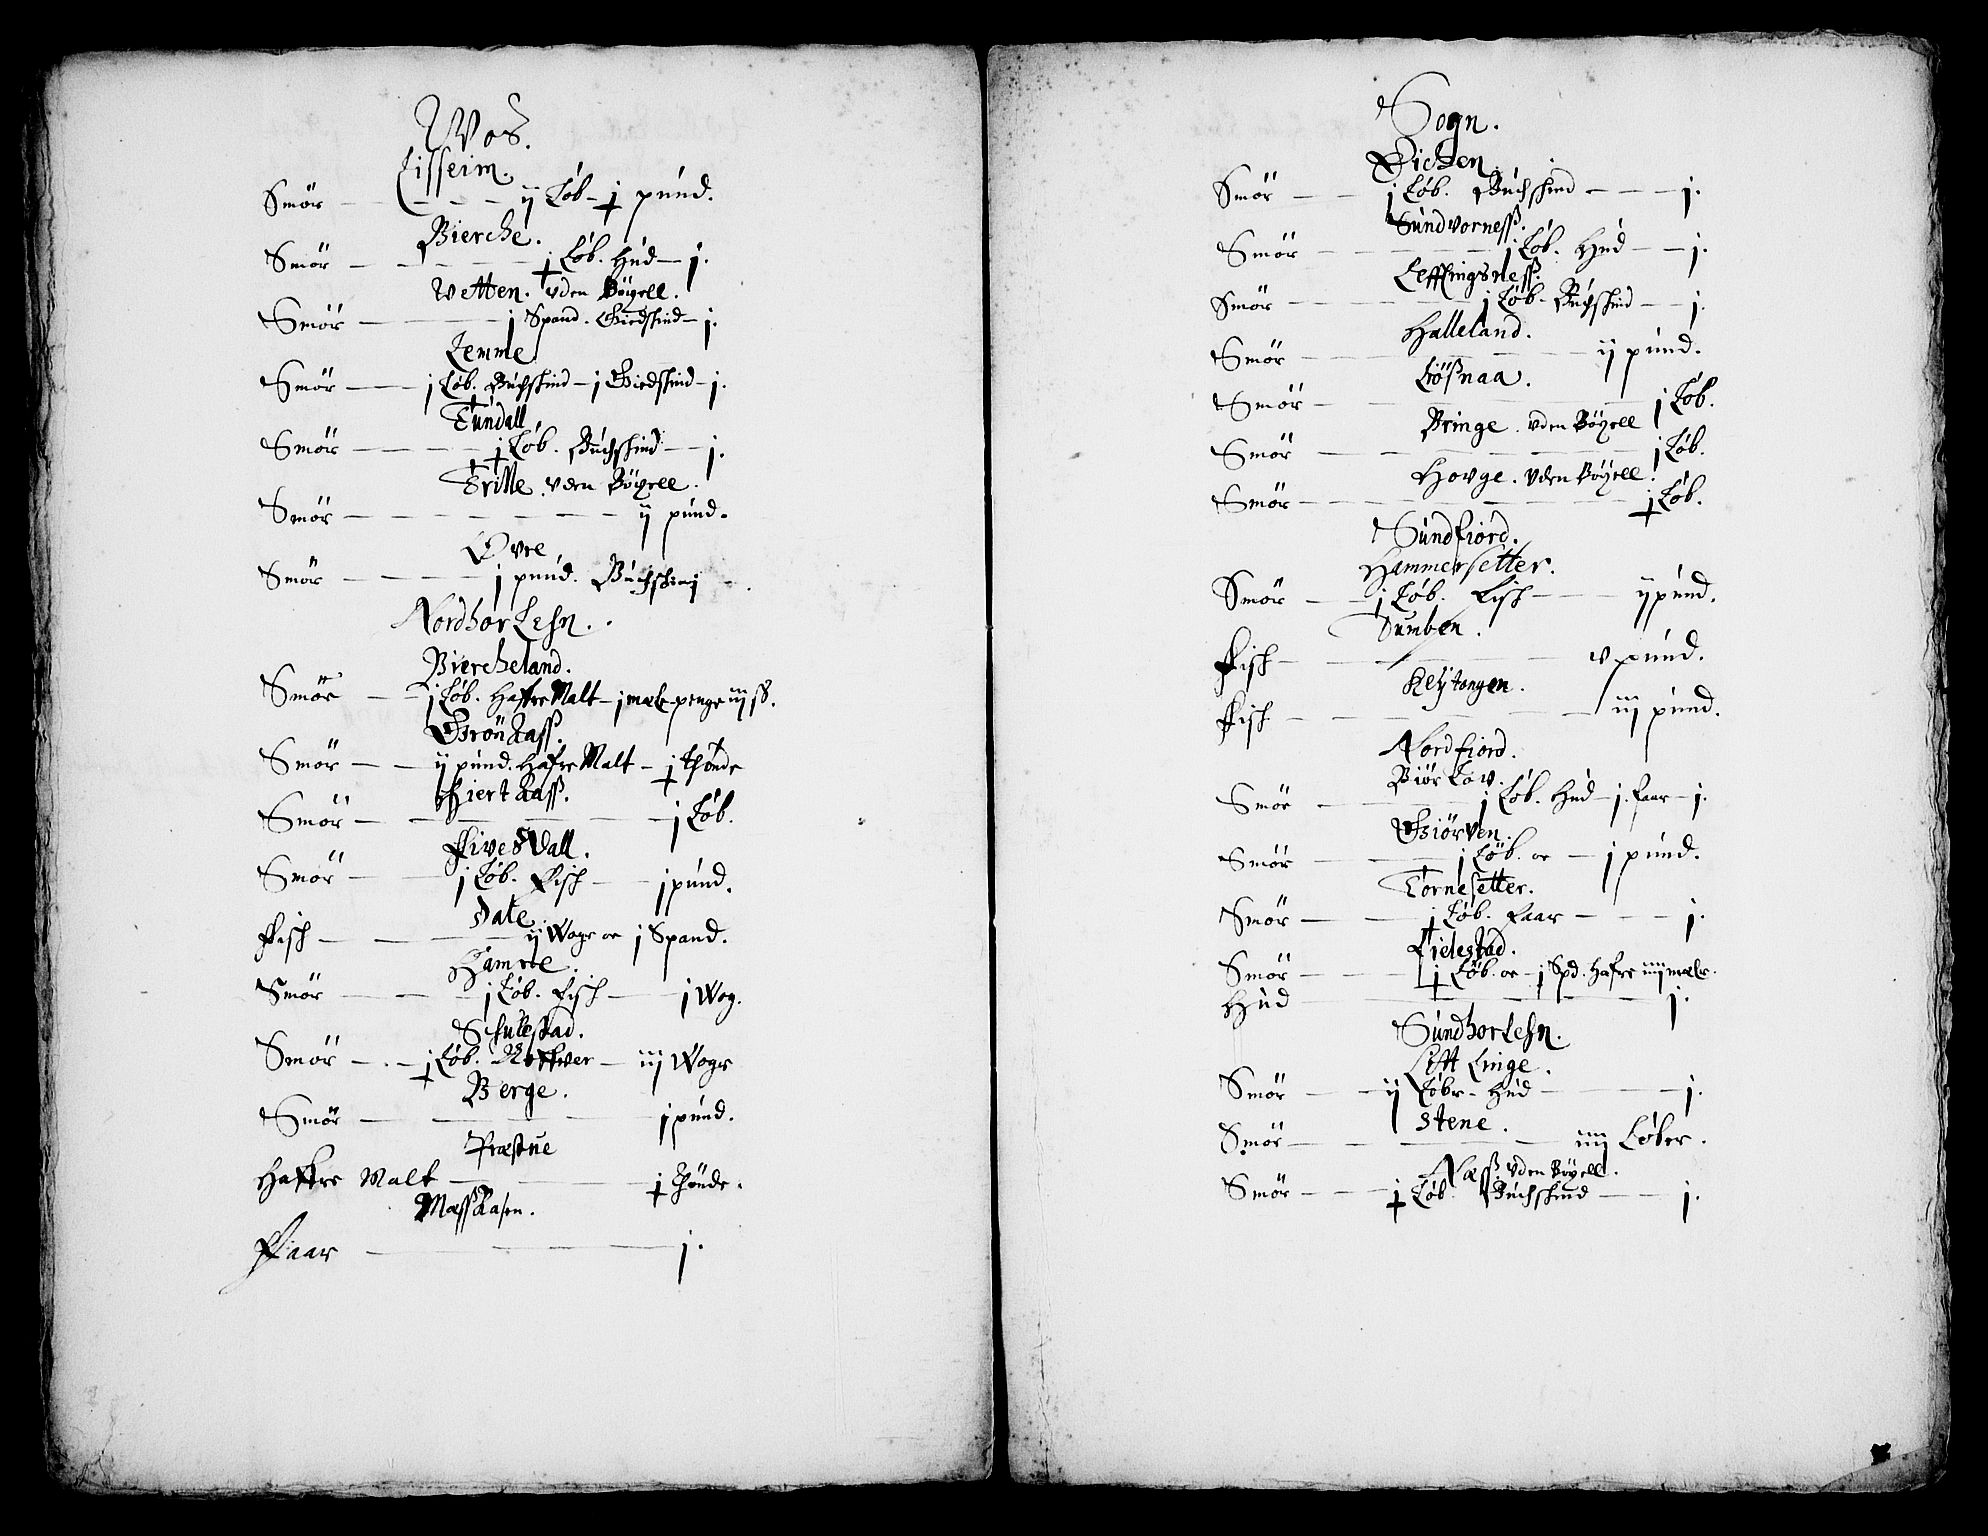 Wos.
Lisseim.
Smör — — — — ij Löb - ɉ pund.
Bierche.
Smör — — — — ɉ Löb. Hud — j.
Wetten. vden Böxell.
Smör — — — j Spand. Giedskind — j.
Lemme
Smör — — j Löb. Buchskind — j Giedskind — j.
Tundall
Smör — — — — ɉ Löb. Buchskind — j.
Trille. vden Böxell.
Smör — — — — — — — ij pund.
Övre
Smör — — — — j pund. Buchskind j
Nordhorlehn.
Biercheland.
Smör — — j Löb. Haffre Malt — j mæle penge iij ß.
Grönaass.
Smör — — ij pund. Hafre Malt — ɉ thönde
Hiertaass.
Smör — — — — — j Löb.
Fivesdall.
Smör — — — j Löb. Fisk — — j pund.
Dale
Fisk — — — — ij Woge oc j Spand.
Hamre.
Smör — — — j Löb. Fisk — — j Wog.
Schulestad.
Smör — . — ɉ Löb. Rekkver — iij Woge
Berge.
Smör — — — — — j pund.
Præstue
Haffre Malt — — — — ɉ Thönde.
Mæssaasen.
Faar — — — — — j.
Sogn.
Eichen
Smör — — j Löb. Buchskind — — — j.
Sundvorness.
Smör — — — — — j Löb. Hud — — j.
Leffingsness.
Smör — — — — — j Löb - Buchskind — — j.
Halleland.
Smör — — — — — — ij pund.
Liösnaa.
Smör — — — — — — j Löb.
Bringe. vden Böxell
Smör — — — — — — j Löb.
Hovge. vden Böxell.
Smör — — — — — — ɉ Löb.
Sundfiord.
Hammersetter.
Smör — — j Löb. Fisk — — — ij pund.
Dumben.
Fisk — — — — — v pund.
Reytangen.
Fisk — — — — — iij pund.
Nordfiord.
Biörlow.
Smör — — — — j Löb. Hud — j. Faar — j.
Giörven.
Smör — — — — j Löb. oc — j pund.
Tornesetter.
Smör — — — — j Löb. Faar — — — j.
Lielestad.
Smör — — — — ɉ Löb. oc — j Spd. Hafre iiij mæle.
Hud — — — — — — j.
Sundhorlehn.
Lifft Linge.
Smör — — — ij Löbe - Hud — — — j.
Stene.
Smör — — — — — iiij Löber.
Næss. vden Böxell.
Smör — — — ɉ Löb. Buchskind — — j.